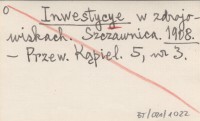 Inwestycye w zdrojo-
wiskach. Szczawnica. 1908.
- Przew. Kąpiel. 5, nr 3.